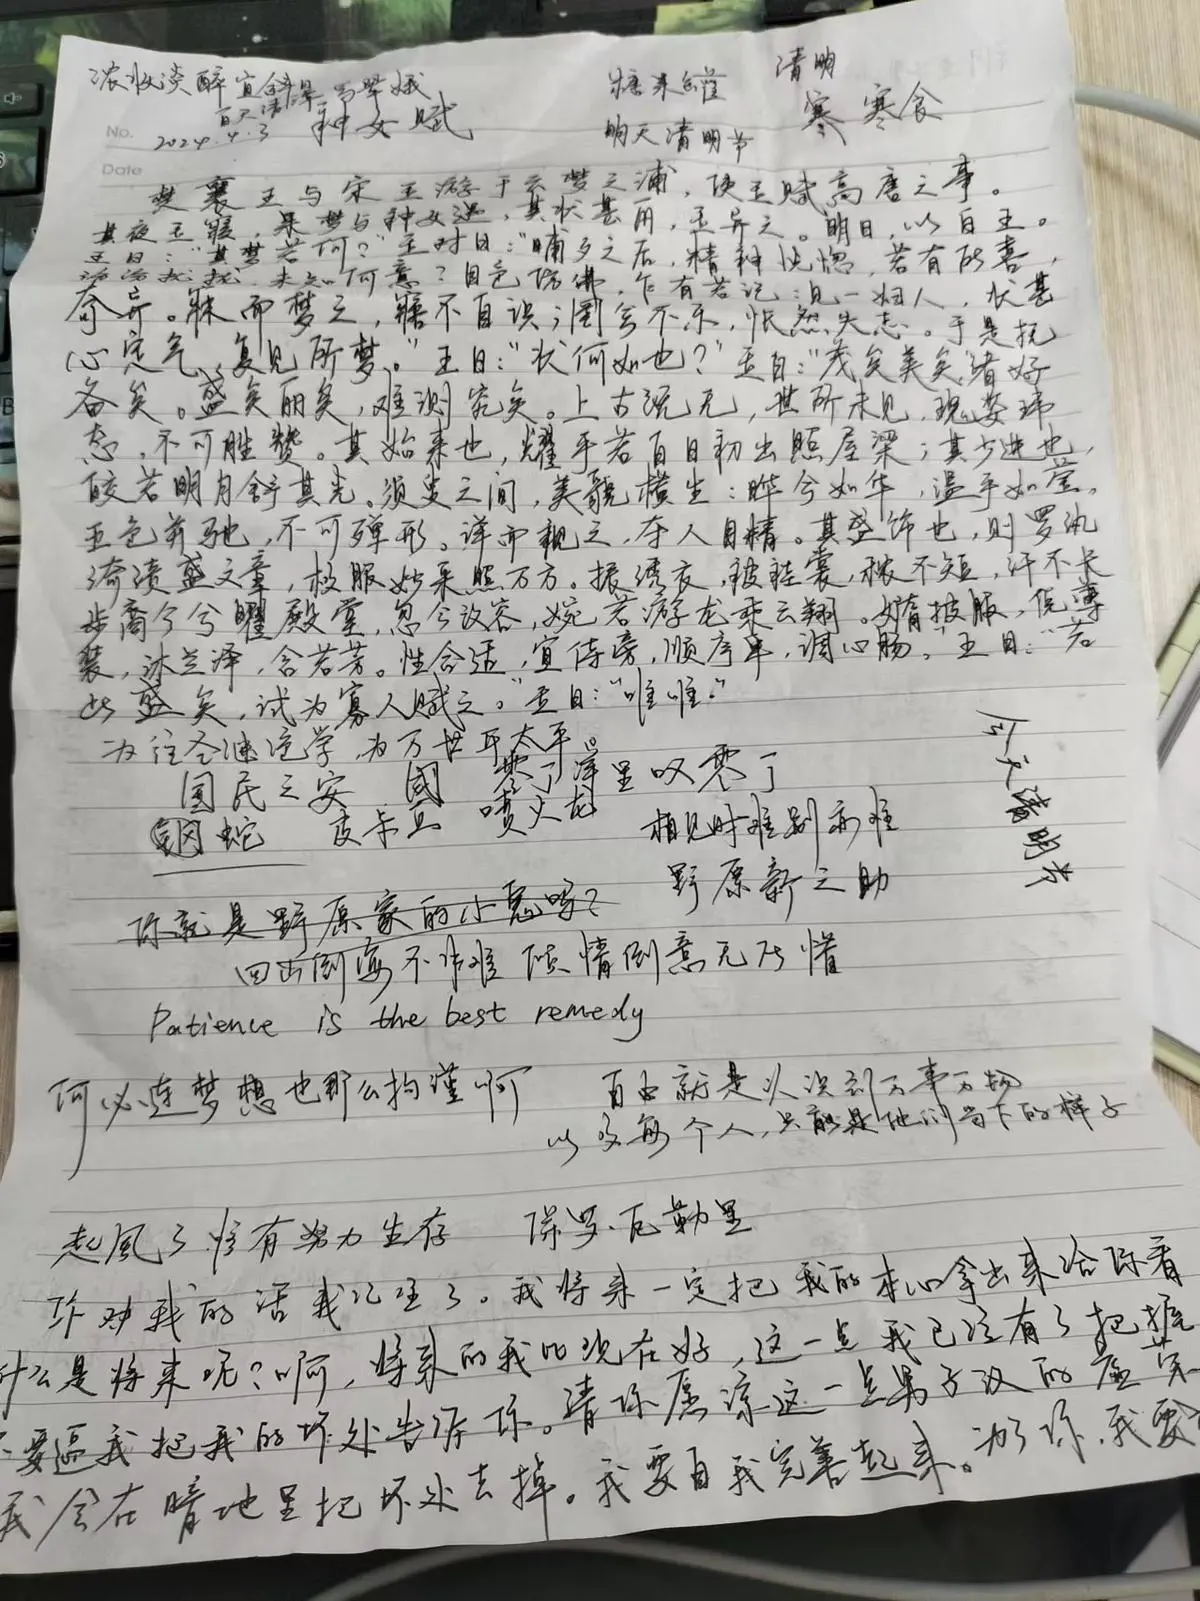 浓妆淡醉宜
糖 来 蕴
清明
百
寒 寒食
2024.4.3 神女赋
明天清明节
No.
Date
楚襄王与宋玉游于云梦之浦，使玉赋高唐之事。
其夜王寝，果梦与神女遇，其状甚丽，玉异之。明日，以白王。
王曰："其梦若何？"玉对曰："晡夕之后，精神恍惚，若有所喜，
未知何意？目色仿佛，乍有若记：见一妇人，状甚
奇异。寐而梦之，寤不自识；罔兮不乐，怅然失志。于是抚
心定气，复见所梦。"王曰："状何如也？"玉曰："茂矣美矣，诸好
备矣。盛矣丽矣，难测究矣。上古既无，世所未见，瑰姿玮
态，不可胜赞。其始来也，耀乎若白日初出照屋梁；其少进也，
皎若明月舒其光。须臾之间，美貌横生：晔兮如华，温乎如莹。
五色并驰，不可殚形。详而视之，夺人目精。其盛饰也，则罗纨
绮缋盛文章，极服妙采照万方。振绣衣，被袿裳，秾不短，纤不长
步裔兮兮曜殿堂，忽兮改容，婉若游龙乘云翔。嫷披服，侻薄
装，沐兰泽，含若芳。性合适，宜侍旁，顺序卑，调心肠。"王曰："若
此盛矣，试为寡人赋之。"玉曰："唯唯。"
为往圣继绝学，为万世开太平。
国民之安 國 零丁洋里叹零丁
钢蛇 皮卡丘 喷火龙 相见时难别亦难
今天清明节
野原新之助
你就是野原家的小葱吗？
四海倒 不 难 倾情倒意无所惜
Patience is the best remedy
何必连梦想也那么拘谨啊 自由就是认识到万事万物
以及每个人，只能是他们当下的样子
起風了，惟有努力生存 保罗·瓦勒里
你对我的话我记住了。我将来一定把我的本心拿出来给你看
什么是将来呢？啊，将来的我比现在好，这一点我已经有了把握
不要逼我把我的坏处告诉你。请你原谅这一点男子汉的虚荣
我会在暗地里把坏处去掉。我要自我完善起来。为了你，我要